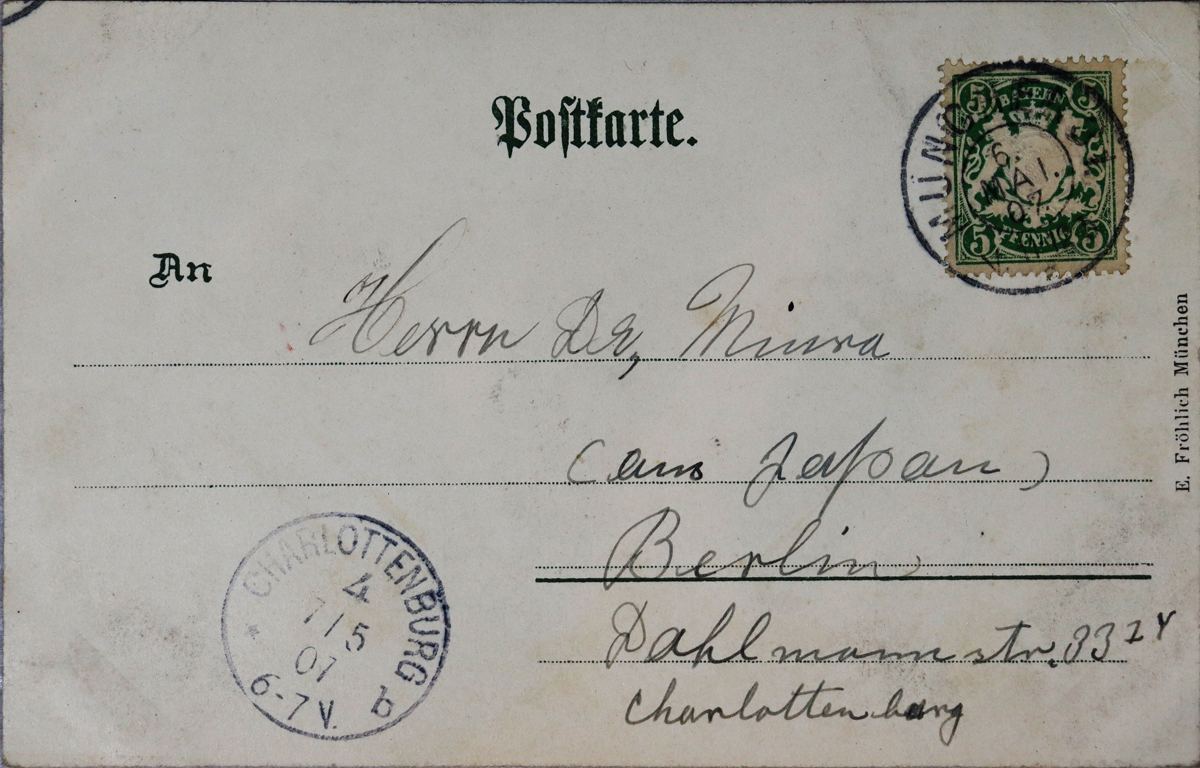 Postkarte.
5 BAYERN 5
MÜNCHEN
6.
MAI.
07
5 PFENNIG 5
An
Herrn Dr, Miura
(aus Japan)
Berlin
Dahlmannstr. 33
Charlottenburg
CHARLOTTENBURG
4
7/5
07
6-7 V.
b
E. Fröhlich München